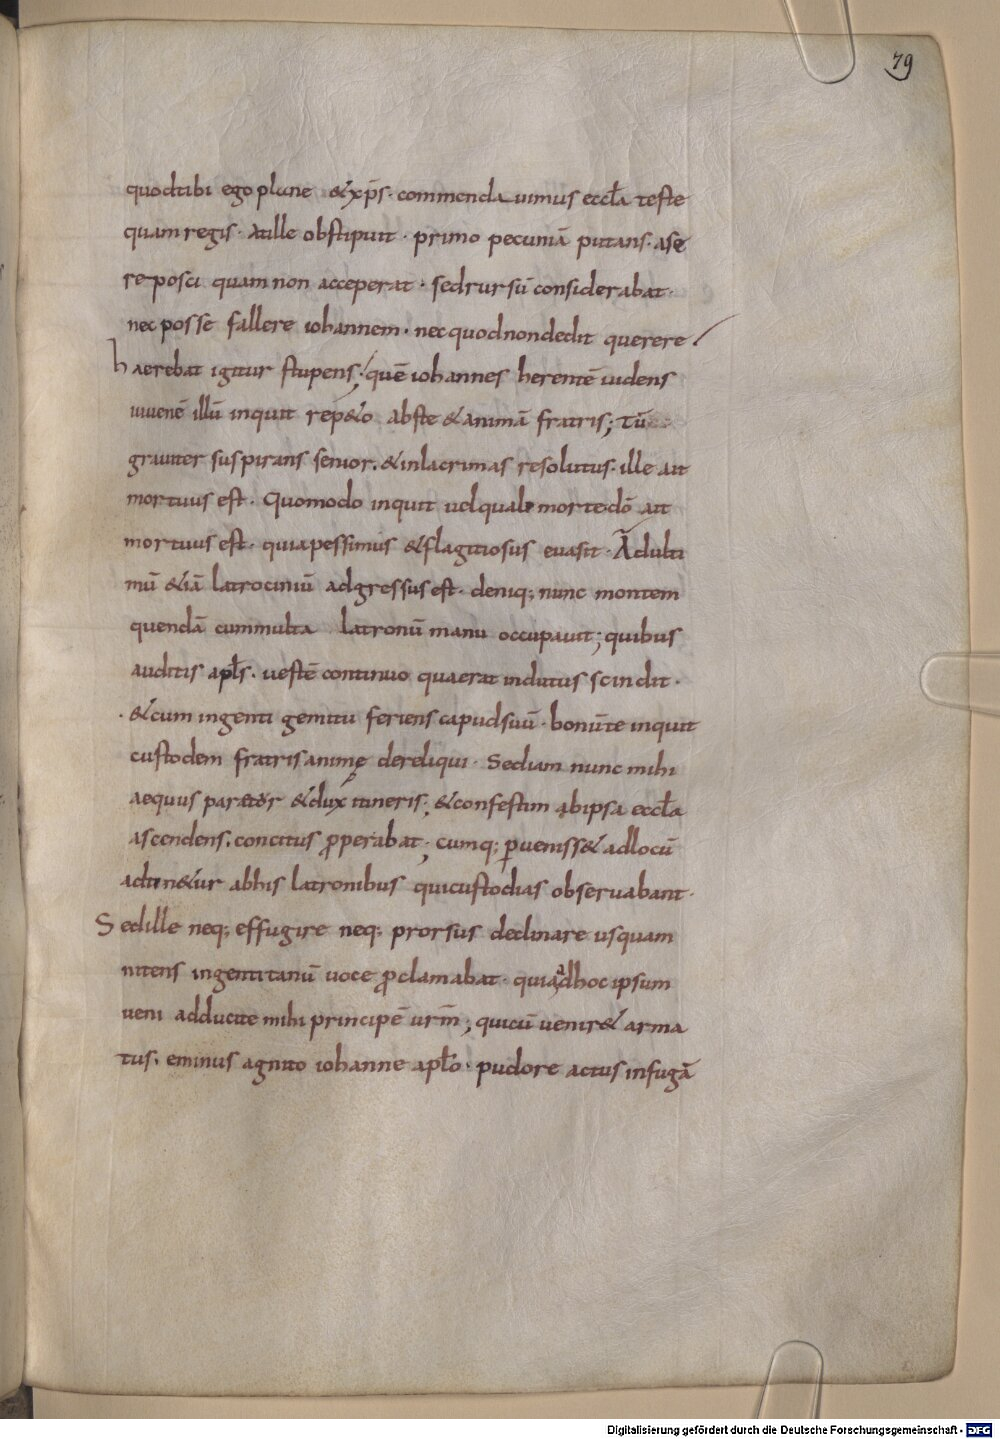 79
quod tibi ego plane &xp̄s · commendauimus eccl̄a teste
quam regis · At ille obstipuit · primo pecuniā putans · a se
reposci quam non acceperat · sed rursū considerabat ·
nec posse fallere iohannem · nec quod non dedit querere
haerebat igitur stupens; quē iohannes herentē uidens
iuuenē illū inquit rep&o abs te & animā fratris; Tū
grauiter suspirans senior · & in lacrimas resolutus · ille ait
mortuus est · Quomodo inquit uel quale morte dō ait
mortuus est · quia pessimus & flagitiosus euasit · Ad ulti
mū &iā latrociniū adgressus est · deniq; nunc montem
quendā cum multa latronū manu occupauit; quibus
auditis apl̄s · uestē continuo qua erat indutus scindit ·
· & cum ingenti gemitu feriens capud suū · bonū te inquit
custodem fratris animę dereliqui · Sed iam nunc mihi
aequus paretur & dux itineris; & confestim ab ipsa eccl̄a
ascendens · concitus p̄perabat; cumq; perueniss& ad locū
adtin&ur ab his latronibus qui custodias obseruabant ·
Sed ille neq; effugire neq; prorsus declinare usquam
nitens ingenti tanū uoce p̄clamabat · quia ad hoc ipsum
ueni adducite mihi principē urm̄; qui cū uenir& arma
tus · eminus agnito iohanne apl̄o · pudore actus in fugā
Digitalisierung gefördert durch die Deutsche Forschungsgemeinschaft - DFG